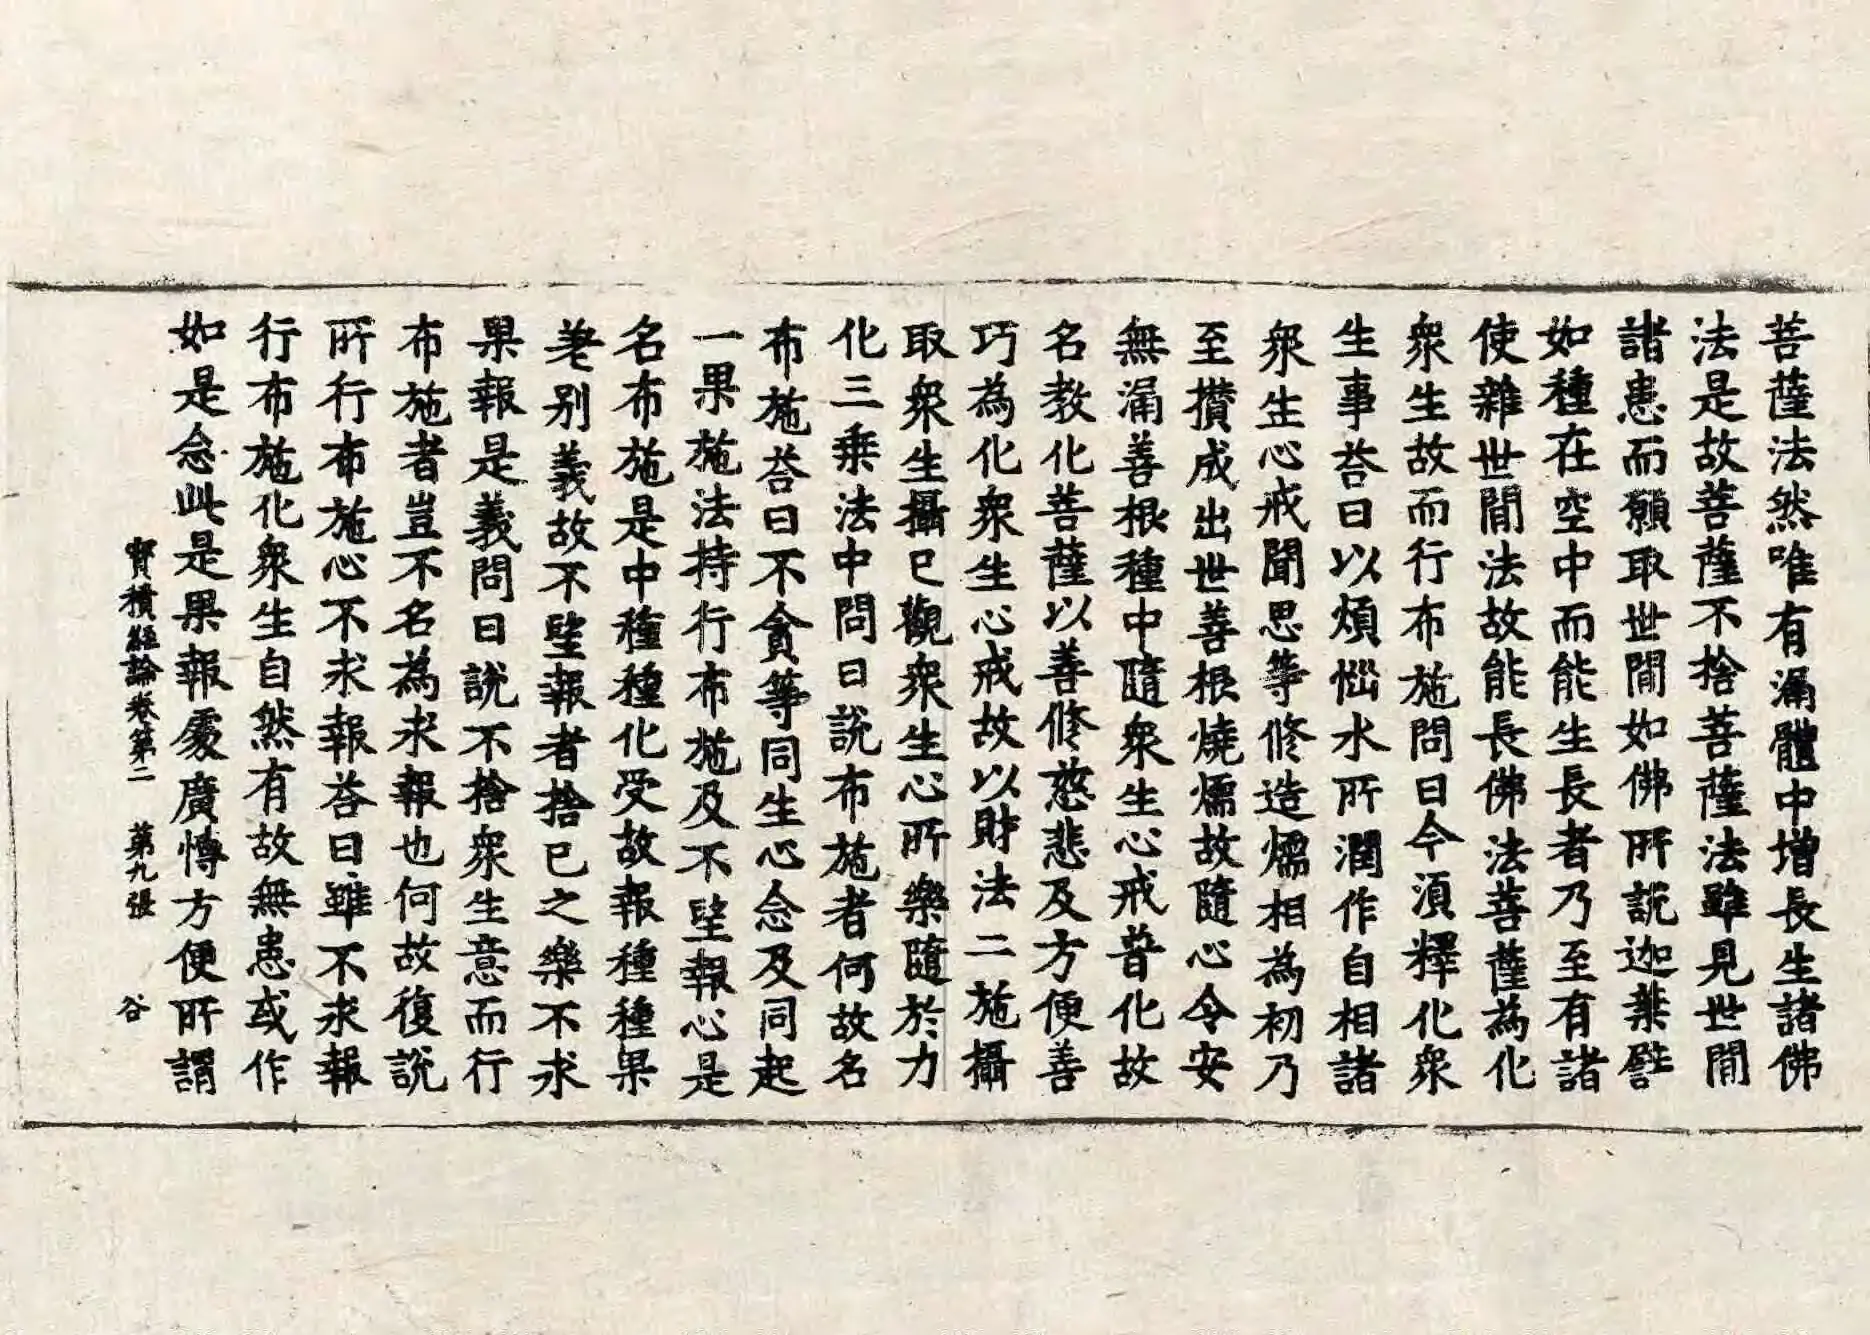 菩薩法然唯有漏體中增長生諸佛
法是故菩薩不捨菩薩法雖見世間
諸患而願取世間如佛所說迦葉譬
如種在空中而能生長者乃至有諸
使雜世間法故能長佛法菩薩為化
眾生故而行布施問曰今須釋化眾
生事荅曰以煩惱水所潤作自相諸
眾生心戒聞思等修造燸相為初乃
至攢成出世善根燒燸故隨心令安
無漏善根種中隨眾生心戒普化故
名教化菩薩以善修慈悲及方便善
巧為化眾生心戒故以財法二施攝
取眾生攝已觀眾生心所樂隨於力
化三乘法中問曰說布施者何故名
布施荅曰不貪等同生心念及同起
一果施法持行布施及不望報心是
名布施是中種種化受故報種種果
差別義故不望報者捨已之樂不求
果報是義問曰說不捨眾生意而行
布施者豈不名為求報也何故復說
所行布施心不求報荅曰雖不求報
行布施化眾生自然有故無患或作
如是念此是果報處廣慱方便所謂
寶積經論卷第二 第九張 谷